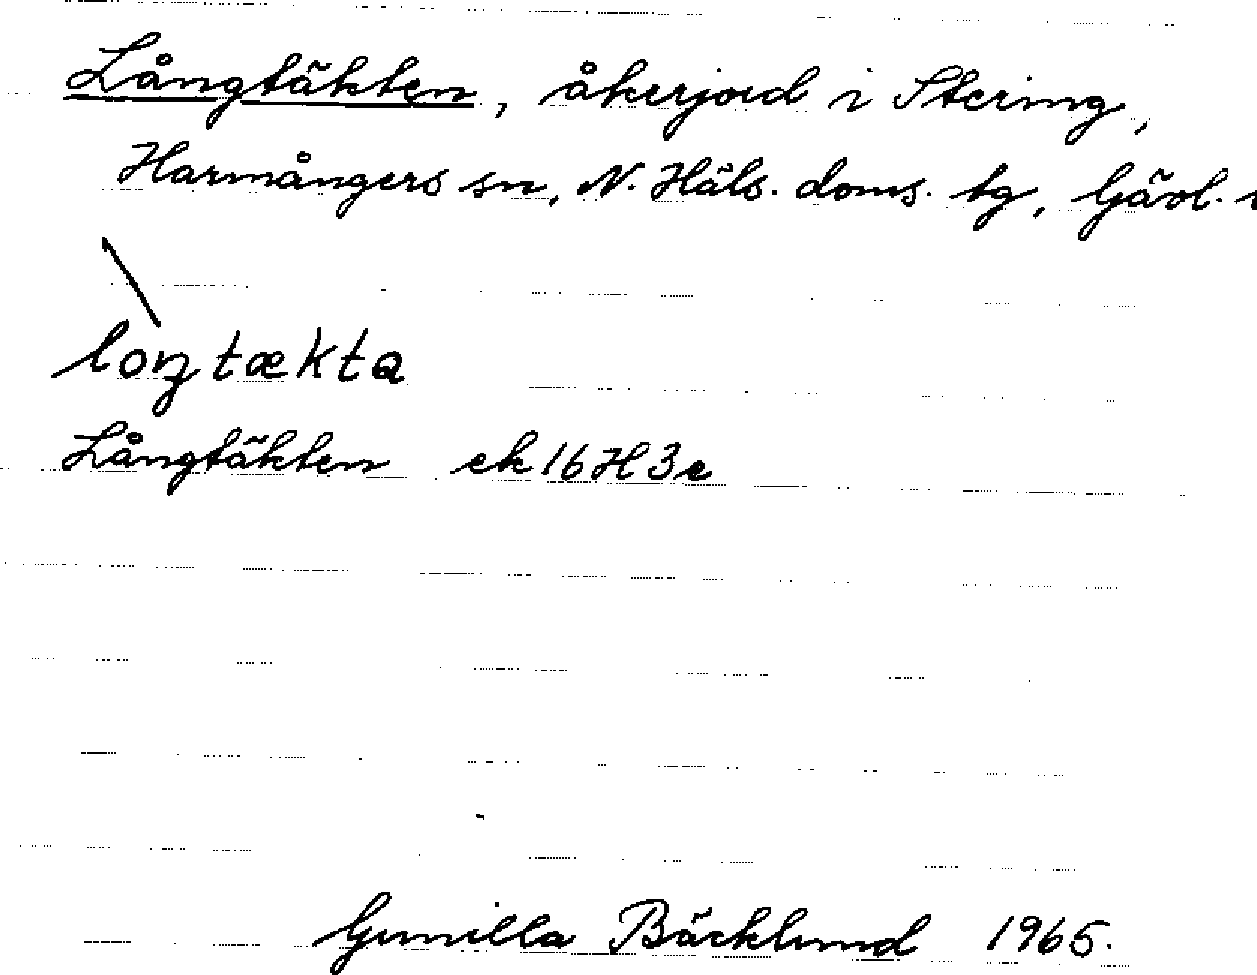 Långtäkten, åkerjord i Stering,
Harmångers sn, N. Häls. doms. tg, Gävl.
loŋtækta
Långtäkten ek 16H3e
Gunilla Bäcklund 1965.